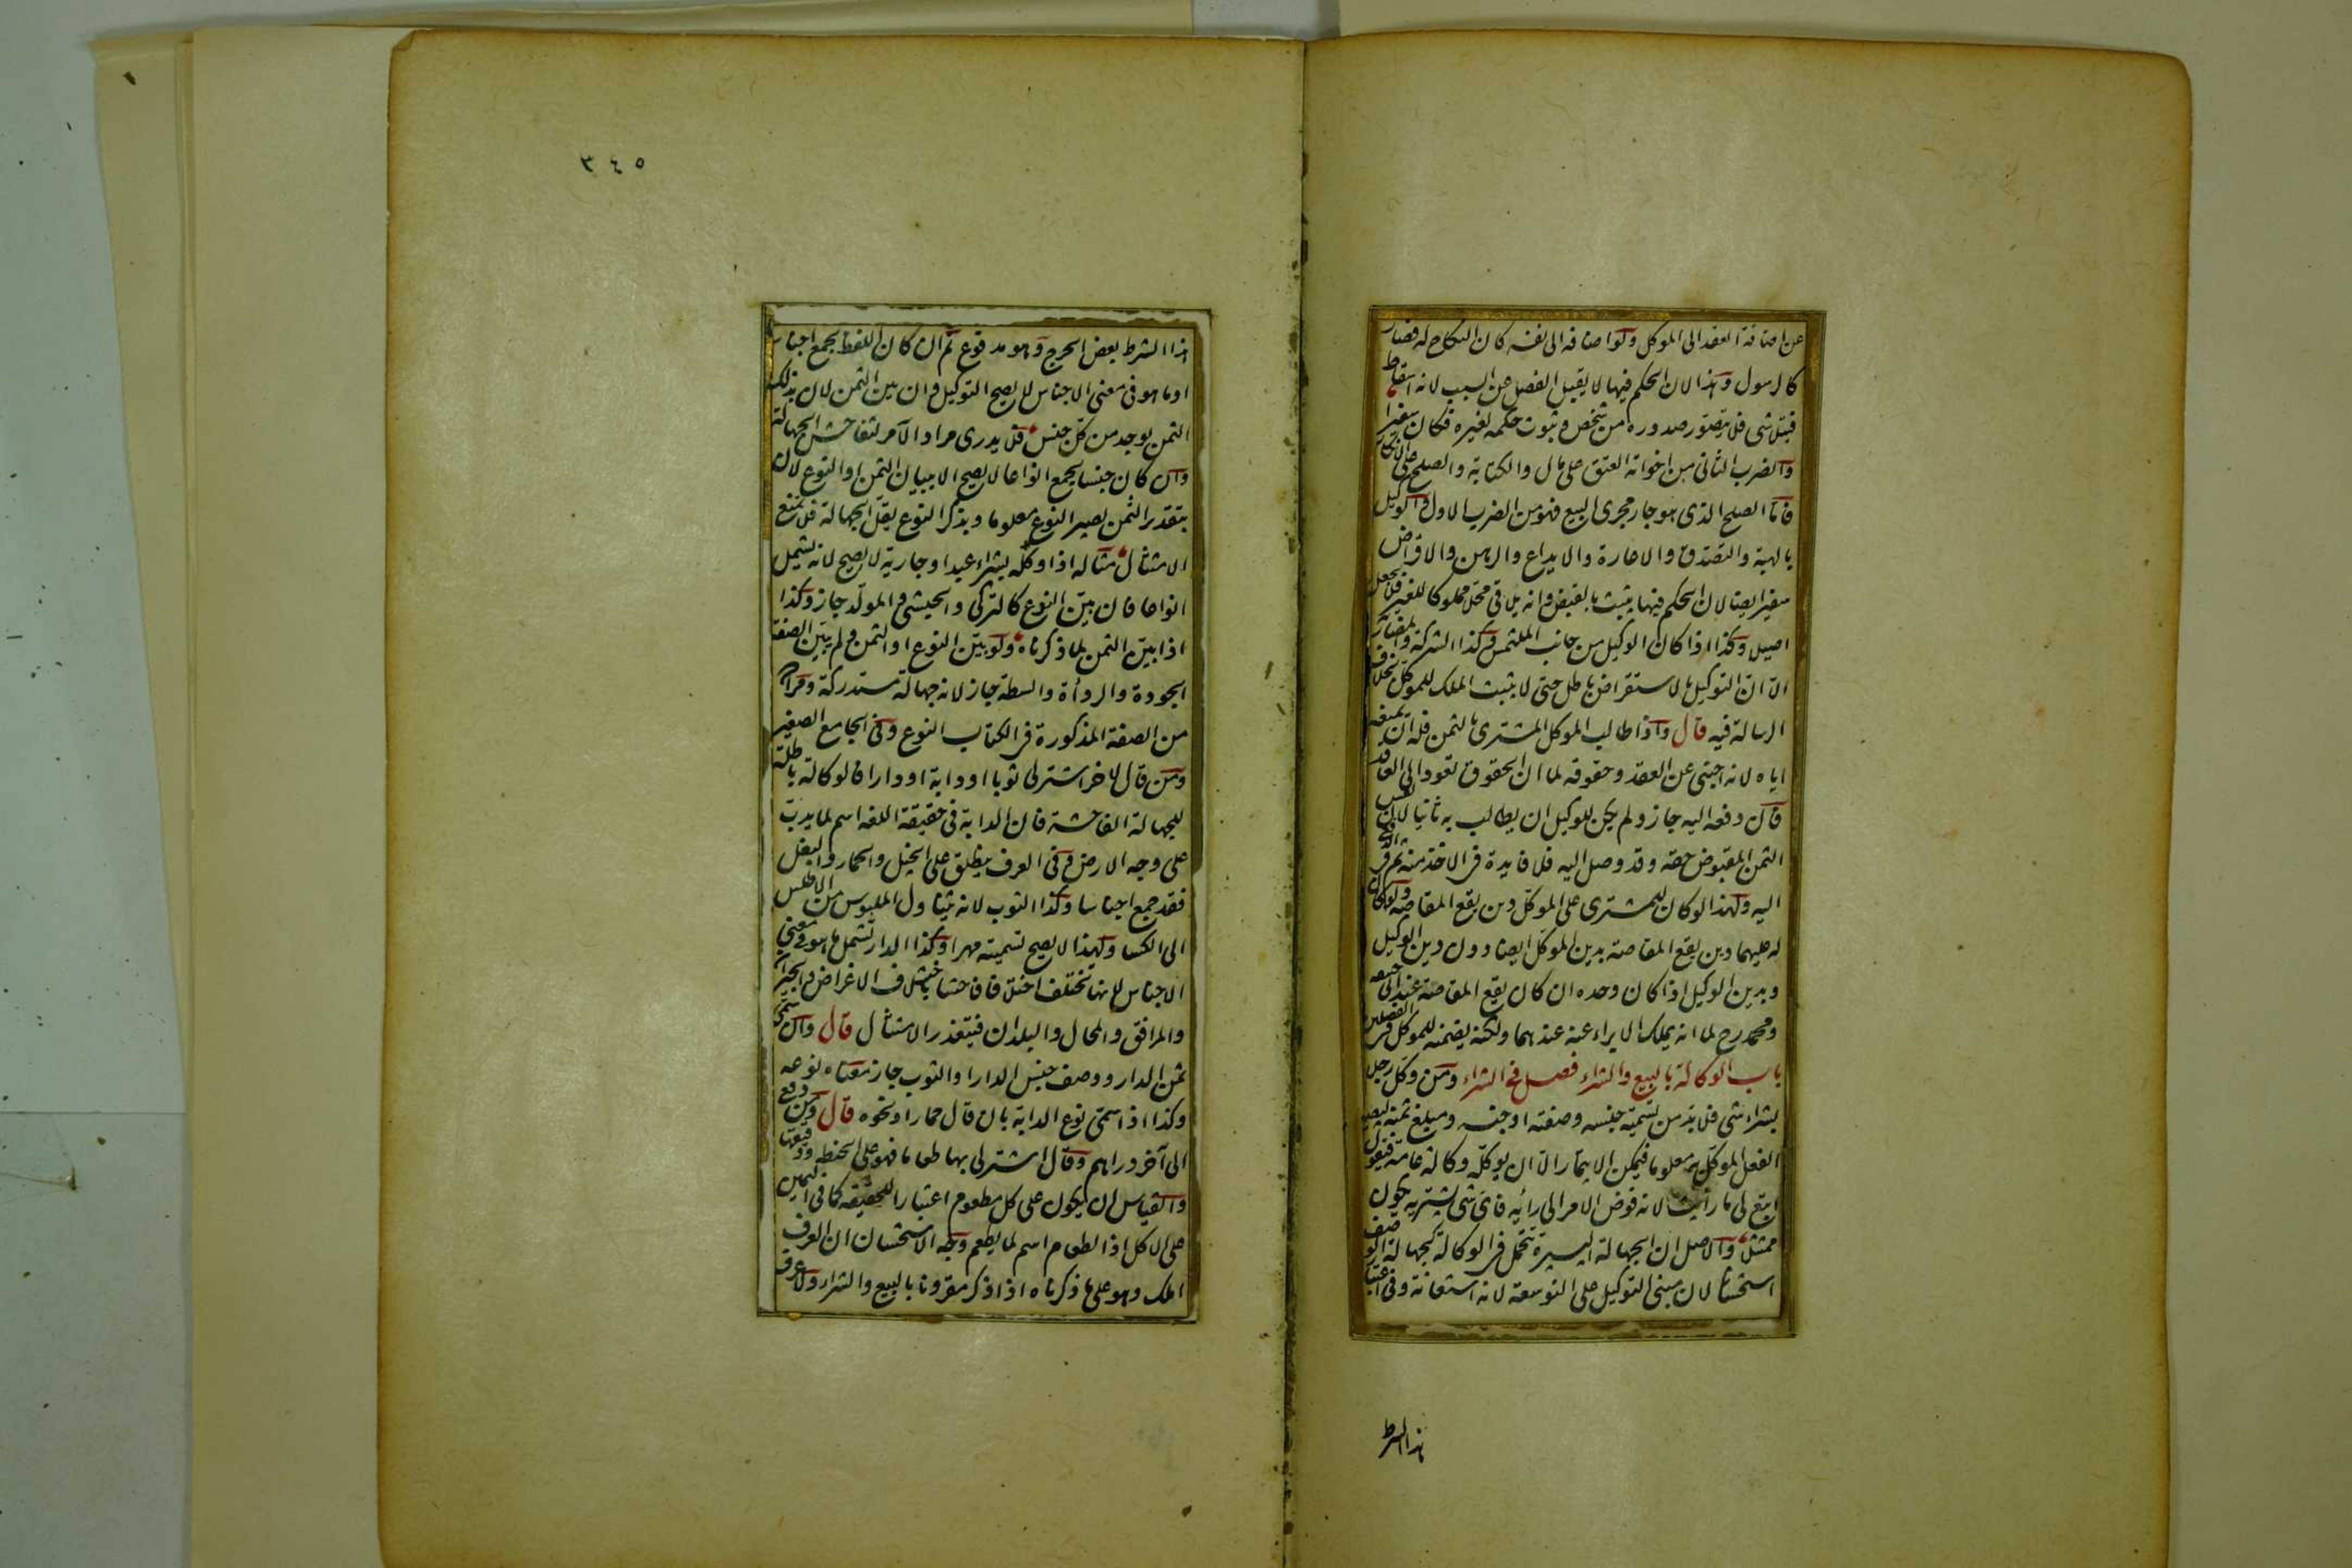 عن اضافة العقد الى الموكل ولو اضافه الى نفسه كان النكاح له فصار
كالرسول وهذا لان الحكم فيها لا يقبل الفصل عن السبب لانه اسقاط
فيتلاشى فلا يتصور صدوره من شخص وثبوت حكمه لغيره فكان سفيرا
والضرب الثانى من اخواته العتق على مال والكتابة والصلح على الانكار
فاما الصلح الذى هو جار مجرى البيع فهو من الضرب الاول والوكيل
بالهبة والتصدق والاعارة والايداع والرهن والاقراض
سفير ايضا لان الحكم فيها يثبت بالقبض وانه يلاقى محلا مملوكا للغير فلا يجعل
اصيلا وكذا اذا كان الوكيل من جانب الملتمس وكذا الشركة والمضاربة
الا ان التوكيل بالاستقراض باطل حتى لا يثبت الملك للموكل بخلاف
الرسالة فيه قال واذا طالب الموكل المشترى بالثمن فله ان يمنعه
اياه لانه اجنبى عن العقد وحقوقه لما ان الحقوق تعود الى العاقد
قال دفعه اليه جاز ولم يكن للوكيل ان يطالب به ثانيا لان نفس
الثمن المقبوض حقه وقد وصل اليه فلا فايدة فى الاخذ منه ثم الدفع
اليه ولهذا لو كان للمشترى على الموكل دين يقع المقاصة ولو كان
له عليهما دين يقع المقاصة بدين الموكل ايضا دون دين الوكيل
وبدين الوكيل اذا كان وحده ان كان يقع المقاصة عند ابى حنيفه
ومحمد رح لما انه يملك الابراء عنه عندهما ولكنه يضمنه للموكل فى الفصلين
باب الوكالة بالبيع والشراء فصل فى الشراء ومن وكل رجلا
بشراء شى فلا بد من تسمية جنسه وصفته او جنسه ومبلغ ثمنه ليصير
الفعل الموكل به معلوما فيمكن الايتمار الا ان يوكله وكالة عامة فيقول
ابتع لى ما رأيت لانه فوض الامر الى رأيه فاى شى يشتريه يكون
ممتثلا والاصل ان الجهالة اليسيرة تتحمل فى الوكالة كجهالة الوصف
استحسانا لان مبنى التوكيل على التوسعة لانه استعانة وفى اعتبار
هذا الشرط
٣٤٥
هذا الشرط بعض الحرج وهو مدفوع ثم ان كان اللفظ يجمع اجناسا
او ما هو فى معنى الاجناس لا يصح التوكيل وان بين الثمن لان بذلك
الثمن يوجد من كل جنس فلا يدرى مراد الآمر لتفاحش الجهالة
وان كان جنسا يجمع انواعا لا يصح الا ببيان الثمن او النوع لان
بتقدير الثمن يصير النوع معلوما وبذكر النوع يقل الجهالة فلا تمنع
الامتثال مثاله اذا وكله بشراء عبد او جارية لا يصح لانه يشمل
انواعا فان بين النوع كالتركى والحبشى والمولد جاز وكذا
اذا بين الثمن لما ذكرناه ولو بين النوع او الثمن ولم يبين الصفة
الجودة والرداءة والسطة جاز لانه جهالة مستدركة ومراده
من الصفة المذكورة فى الكتاب النوع وفى الجامع الصغير
ومن قال لاخر اشتر لى ثوبا او دابة او دارا فالوكالة باطلة
للجهالة الفاحشة فان الدابة فى حقيقة اللغه اسم لما يدب
على وجه الارض وفى العرف يطلق على الخيل والحمار والبغل
فقد جمع اجناسا وكذا الثوب لانه يتناول الملبوس من الاطلس
الى الكساء ولهذا لا يصح تسميته مهرا وكذا الدار تشمل ما هو فى معنى
الاجناس لانها تختلف اختلافا فاحشا باختلاف الاغراض والجيران
والمرافق والمحال والبلدان فيتعذر الامتثال قال وان سمى
ثمن الدار ووصف جنس الدار او الثوب جاز معناه نوعه
وكذا اذا سمى نوع الدابة بان قال حمارا ونحوه قال ومن دفع
الى آخر دراهم وقال اشتر لى بها طعاما فهو على الحنطه ودقيقها
والقياس ان يكون على كل مطعوم اعتبارا للحقيقه كما فى اليمين
على الاكل اذ الطعام اسم لما يطعم وجه الاستحسان ان العرف
املك وهو على ما ذكرناه اذا ذكر مقرونا بالبيع والشراء ولا عرف